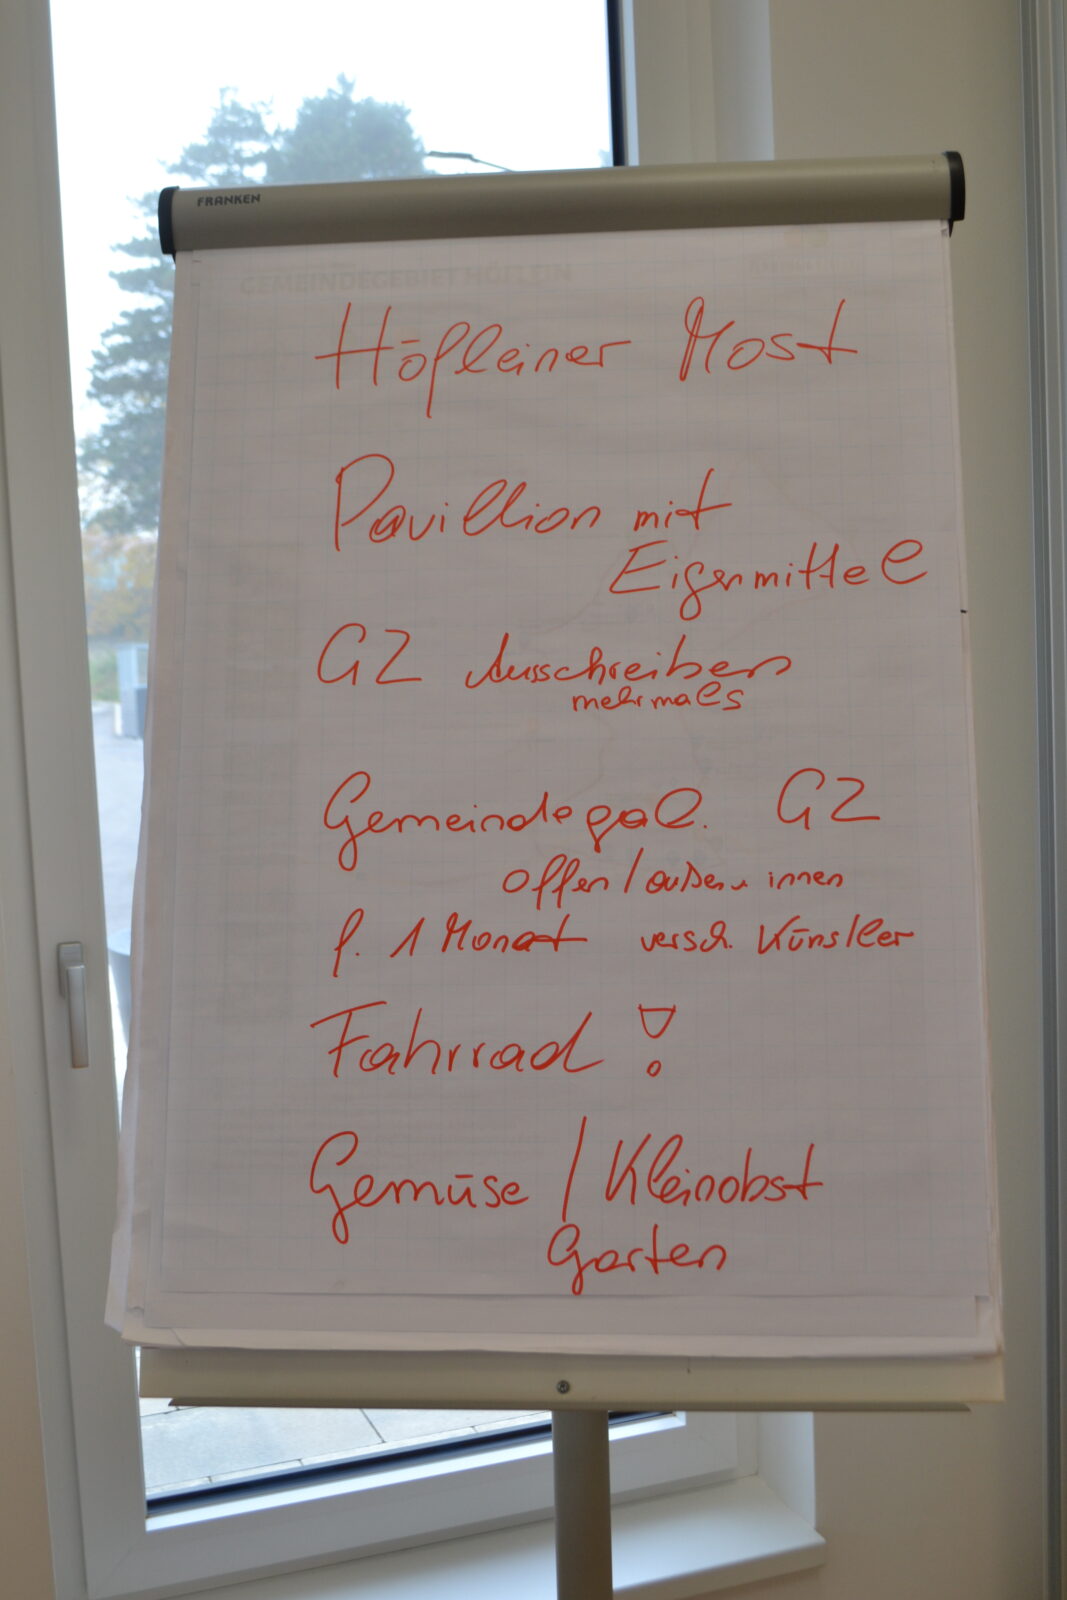 FRANKEN
GEMEINDEGEBIET HÖFLEIN
Höfleiner Most
Pavillion mit
Eigenmittel
GZ Ausschreiben
mehrmals
Gemeindegal. GZ
offen / außen u innen
f. 1 Monat versch. Künstler
Fahrrad !
Gemüse / Kleinobst
Garten